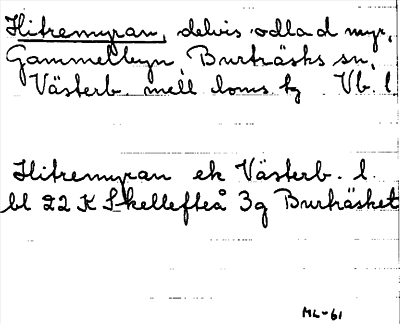 Hitremyran, delvis odlad myr,
Gammelbyn, Burträsks sn,
Västerb. mell loms tg Vb. l.
Hitremyran ek Västerb. l.
bl 22 K Skellefteå 3g Burträsket
ML-61